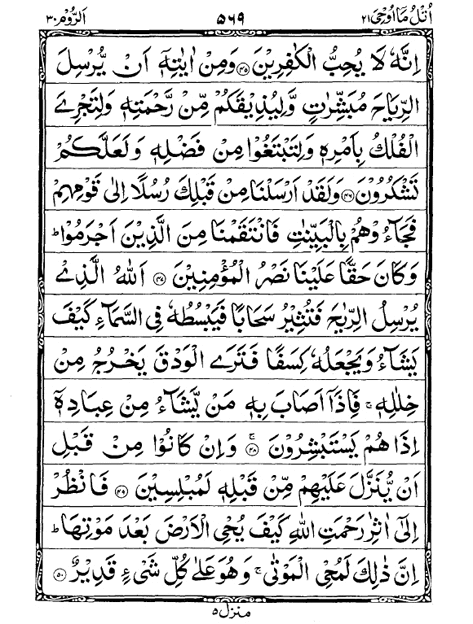 اُتْلُ مَآ اُوْحِیَ ٢١ ٥٦٩ اَلرُّوْم ٣٠
اِنَّهٗ لَا یُحِبُّ الْکٰفِرِیْنَ ﴿٤٥﴾ وَمِنْ اٰیٰتِهٖۤ اَنْ یُّرْسِلَ
الرِّیَاحَ مُبَشِّرٰتٍ وَّلِیُذِیْقَکُمْ مِّنْ رَّحْمَتِهٖ وَلِتَجْرِیَ
الْفُلْکُ بِاَمْرِهٖ وَلِتَبْتَغُوْا مِنْ فَضْلِهٖ وَلَعَلَّکُمْ
تَشْکُرُوْنَ ﴿٤٦﴾ وَلَقَدْ اَرْسَلْنَا مِنْ قَبْلِکَ رُسُلًا اِلٰی قَوْمِهِمْ
فَجَآءُوْهُمْ بِالْبَیِّنٰتِ فَانْتَقَمْنَا مِنَ الَّذِیْنَ اَجْرَمُوْا ؕ
وَکَانَ حَقًّا عَلَیْنَا نَصْرُ الْمُؤْمِنِیْنَ ﴿٤٧﴾ اَللّٰهُ الَّذِیْ
یُرْسِلُ الرِّیٰحَ فَتُثِیْرُ سَحَابًا فَیَبْسُطُهٗ فِی السَّمَآءِ کَیْفَ
یَشَآءُ وَیَجْعَلُهٗ کِسَفًا فَتَرَی الْوَدْقَ یَخْرُجُ مِنْ
خِلٰلِهٖ ۚ فَاِذَاۤ اَصَابَ بِهٖ مَنْ یَّشَآءُ مِنْ عِبَادِهٖۤ
اِذَا هُمْ یَسْتَبْشِرُوْنَ ﴿٤٨﴾ۚ وَاِنْ کَانُوْا مِنْ قَبْلِ
اَنْ یُّنَزَّلَ عَلَیْهِمْ مِّنْ قَبْلِهٖ لَمُبْلِسِیْنَ ﴿٤٩﴾ فَانْظُرْ
اِلٰۤی اَثٰرِ رَحْمَتِ اللّٰهِ کَیْفَ یُحْیِ الْاَرْضَ بَعْدَ مَوْتِهَا ؕ
اِنَّ ذٰلِکَ لَمُحْیِ الْمَوْتٰی ۚ وَهُوَ عَلٰی کُلِّ شَیْءٍ قَدِیْرٌ ﴿٥٠﴾
منزل ٥